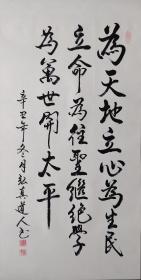 為天地立心為生民
立命為往聖繼絕學
為萬世開太平
辛丑年冬月真道人书